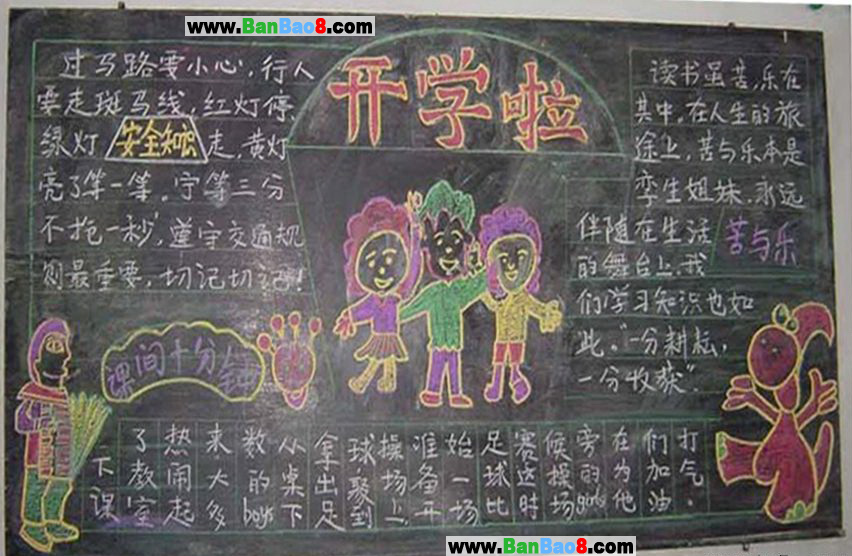 www.BanBao8.com
开学啦
过马路要小心,行人
要走斑马线,红灯停,
绿灯 走,黄灯
安全知识
亮了等一等。宁等三分
不抢一秒,遵守交通规
则最重要,切记切记!
读书虽苦,乐在
其中,在人生的旅
途上,苦与乐本是
孪生姐妹,永远
伴随在生活
的舞台上,我
们学习知识也如
此。"一分耕耘,
一分收获"。
苦与乐
课间十分钟
一下课
了教室
热闹起
来大多
数的boys
从桌下
拿出足
球,聚到
操场上,
准备开
始一场
足球比
赛这时
候操场
旁的girls
在为他
们加油
打气。
www.BanBao8.com